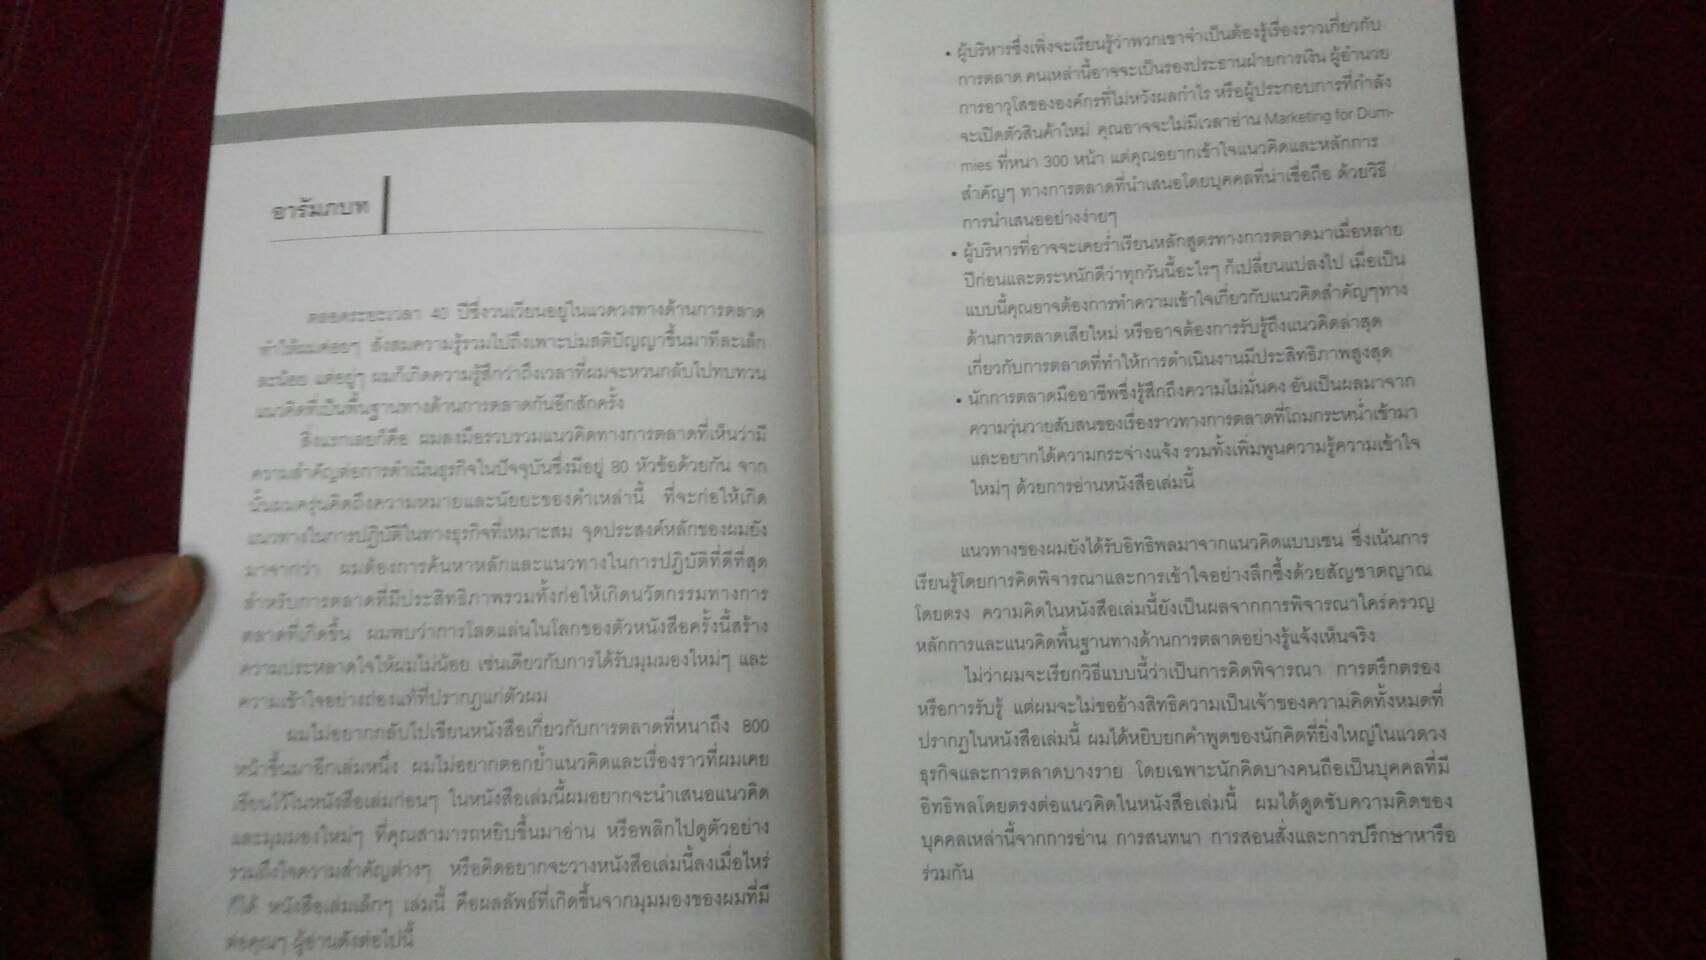 อารัมภบท
ตลอดระยะเวลา 40 ปีซึ่งวนเวียนอยู่ในแวดวงทางด้านการตลาด
ทำให้ผมค่อยๆ สั่งสมความรู้รวมไปถึงเพาะบ่มสติปัญญาขึ้นมาทีละเล็ก
ละน้อย แต่อยู่ๆ ผมก็เกิดความรู้สึกว่าถึงเวลาที่ผมจะหวนกลับไปทบทวน
แนวคิดที่เป็นพื้นฐานทางด้านการตลาดกันอีกสักครั้ง
สิ่งแรกเลยก็คือ ผมลงมือรวบรวมแนวคิดทางการตลาดที่เห็นว่ามี
ความสำคัญต่อการดำเนินธุรกิจในปัจจุบันซึ่งมีอยู่ 80 หัวข้อด้วยกัน จาก
นั้นผมครุ่นคิดถึงความหมายและนัยยะของคำเหล่านี้ ที่จะก่อให้เกิด
แนวทางในการปฏิบัติในทางธุรกิจที่เหมาะสม จุดประสงค์หลักของผมยัง
มาจากว่า ผมต้องการค้นหาหลักและแนวทางในการปฏิบัติที่ดีที่สุด
สำหรับการตลาดที่มีประสิทธิภาพรวมทั้งก่อให้เกิดนวัตกรรมทางการ
ตลาดที่เกิดขึ้น ผมพบว่าการโลดแล่นในโลกของตัวหนังสือครั้งนี้สร้าง
ความประหลาดใจให้ผมไม่น้อย เช่นเดียวกับการได้รับมุมมองใหม่ๆ และ
ความเข้าใจอย่างถ่องแท้ที่ปรากฏแก่ตัวผม
ผมไม่อยากกลับไปเขียนหนังสือเกี่ยวกับการตลาดที่หนาถึง 800
หน้าขึ้นมาอีกเล่มหนึ่ง ผมไม่อยากตอกย้ำแนวคิดและเรื่องราวที่ผมเคย
เขียนไว้ในหนังสือเล่มก่อนๆ ในหนังสือเล่มนี้ผมอยากจะนำเสนอแนวคิด
และมุมมองใหม่ๆ ที่คุณสามารถหยิบขึ้นมาอ่าน หรือพลิกไปดูตัวอย่าง
รวมถึงใจความสำคัญต่างๆ หรือคิดอยากจะวางหนังสือเล่มนี้ลงเมื่อไหร่
ก็ได้ หนังสือเล่มเล็กๆ เล่มนี้ คือผลลัพธ์ที่เกิดขึ้นจากมุมมองของผมที่มี
ต่อคุณๆ ผู้อ่านดังต่อไปนี้
• ผู้บริหารซึ่งเพิ่งจะเรียนรู้ว่าพวกเขาจำเป็นต้องรู้เรื่องราวเกี่ยวกับ
การตลาด คนเหล่านี้อาจจะเป็นรองประธานฝ่ายการเงิน ผู้อำนวย
การอาวุโสขององค์กรที่ไม่หวังผลกำไร หรือผู้ประกอบการที่กำลัง
จะเปิดตัวสินค้าใหม่ คุณอาจจะไม่มีเวลาอ่าน Marketing for Dum-
mies ที่หนา 300 หน้า แต่คุณอยากเข้าใจแนวคิดและหลักการ
สำคัญๆ ทางการตลาดที่นำเสนอโดยบุคคลที่น่าเชื่อถือ ด้วยวิธี
การนำเสนออย่างง่ายๆ
• ผู้บริหารที่อาจจะเคยร่ำเรียนหลักสูตรทางการตลาดมาเมื่อหลาย
ปีก่อนและตระหนักดีว่าทุกวันนี้อะไรๆ ก็เปลี่ยนแปลงไป เมื่อเป็น
แบบนี้คุณอาจต้องการทำความเข้าใจเกี่ยวกับแนวคิดสำคัญๆทาง
ด้านการตลาดเสียใหม่ หรืออาจต้องการรับรู้ถึงแนวคิดล่าสุด
เกี่ยวกับการตลาดที่ทำให้การดำเนินงานมีประสิทธิภาพสูงสุด
• นักการตลาดมืออาชีพซึ่งรู้สึกถึงความไม่มั่นคง อันเป็นผลมาจาก
ความวุ่นวายสับสนของเรื่องราวทางการตลาดที่โถมกระหน่ำเข้ามา
และอยากได้ความกระจ่างแจ้ง รวมทั้งเพิ่มพูนความรู้ความเข้าใจ
ใหม่ๆ ด้วยการอ่านหนังสือเล่มนี้
แนวทางของผมยังได้รับอิทธิพลมาจากแนวคิดแบบเซน ซึ่งเน้นการ
เรียนรู้โดยการคิดพิจารณาและการเข้าใจอย่างลึกซึ้งด้วยสัญชาตญาณ
โดยตรง ความคิดในหนังสือเล่มนี้ยังเป็นผลจากการพิจารณาใคร่ครวญ
หลักการและแนวคิดพื้นฐานทางด้านการตลาดอย่างรู้แจ้งเห็นจริง
ไม่ว่าผมจะเรียกวิธีแบบนี้ว่าเป็นการคิดพิจารณา การตรึกตรอง
หรือการรับรู้ แต่ผมจะไม่ขออ้างสิทธิความเป็นเจ้าของความคิดทั้งหมดที่
ปรากฏในหนังสือเล่มนี้ ผมได้หยิบยกคำพูดของนักคิดที่ยิ่งใหญ่ในแวดวง
ธุรกิจและการตลาดบางราย โดยเฉพาะนักคิดบางคนถือเป็นบุคคลที่มี
อิทธิพลโดยตรงต่อแนวคิดในหนังสือเล่มนี้ ผมได้ดูดซับความคิดของ
บุคคลเหล่านี้จากการอ่าน การสนทนา การสอนสั่งและการปรึกษาหารือ
ร่วมกัน